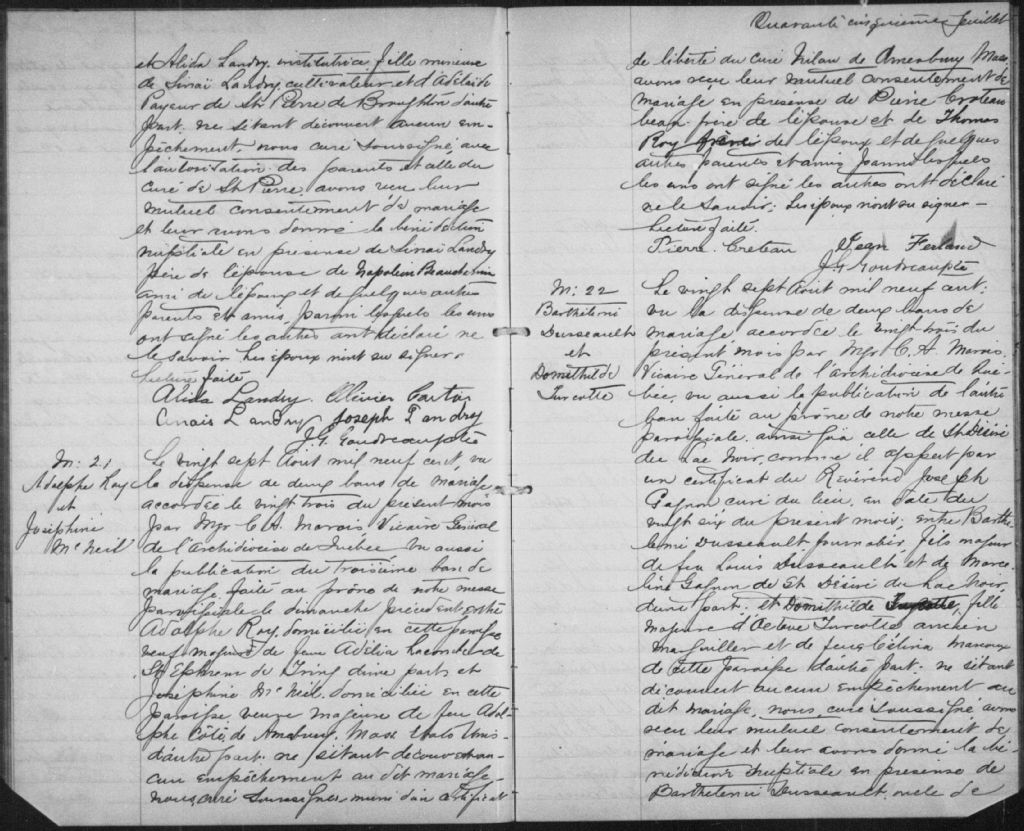 et Alida Landry, institutrice fille mineure
de Sinaï Landry, cultivateur, et d'Adélaïde
Payeur de St. Pierre de Broughton d'autre
part. ne s'étant découvert aucun em-
pêchement, nous curé soussigné avec
l'autorisation des parents et celle du
curé de St Pierre, avons reçu leur
mutuel consentement de mariage
et leur avons donné la bénédiction
nuptiale en présence de Sinaï Landry
père de l'épouse de Napoléon Beauchemin
ami de l'époux et de quelques autres
parents et amis, parmi lesquels les uns
ont signé les autres ont déclaré ne
le savoir. Les époux n'ont su signer.
Lecture faite
Alice Landry. Olivier
Anais Landry Joseph Landry
J. G. Goudreau, ptre
M: 21
Adolphe Roy
et
Joséphine
McNeil
Le vingt sept Août mil neuf cent, vu
la dispense de deux bans de mariage
accordée le vingt trois du présent mois
par Mgr C. A. Marois Vicaire Général
de l'archidiocèse de Québec Vu aussi
la publication du troisième ban de
mariage faite au prône de notre messe
paroissiale le dimanche précédent, entre
Adolphe Roy, domicilié en cette paroisse
veuf majeur de feue Adélia de
St Ephrem de Tring d'une part, et
Joséphine McNeil domiciliée en cette
paroisse, veuve majeure de feu Adol-
phe Côté de Amesbury, Mass Etats Unis
d'autre part. ne s'étant découvert au-
cun empêchement au dit mariage,
nous curé soussigné, muni d'un certificat
Quarante cinquième feuillet
de liberté du curé Nilan de Amesbury Mass.
avons reçu leur mutuel consentement de
mariage en présence de Pierre Croteau
beau-frère de l'épouse et de Thomas
Roy frère de l'époux et de quelques
autres parents et amis parmi lesquels
les uns ont signé les autres ont déclaré
ne le savoir; Les époux n'ont su signer -
Lecture faite.
Pierre Croteau Jean Ferland
J. G. Goudreau, ptre
M: 22
Barthélemi
Dusseault
et
Domithilde
Turcotte
Le vingt sept Août mil neuf cent:
vu la dispense de deux bans de
mariage accordée le vingt trois du
présent mois par Mgr C. A. Marois,
Vicaire Général de l'archidiocèse de Qué-
bec, vu aussi la publication de l'autre
ban faite au prône de notre messe
paroissiale ainsi qu'à celle de St Désiré
du Lac Noir, comme il appert par
un certificat du Révérend Joseph
Gagnon curé du lieu, en date du
vingt six du présent mois; entre Barthé-
lemi Dusseault journalier, fils majeur
de feu Louis Dusseault et de Marce-
line Gagnon de St Désiré du Lac Noir,
d'une part; et Domithilde Turcotte, fille
majeure d'Octave Turcotte ancien
marguiller et de feue Célina Marcoux
de cette paroisse d'autre part. ne s'étant
découvert aucun empêchement au
dit mariage, nous, curé soussigné avons
reçu leur mutuel consentement de
mariage et leur avons donné la bé-
nédiction nuptiale en présence de
Barthélemi Dusseault oncle de